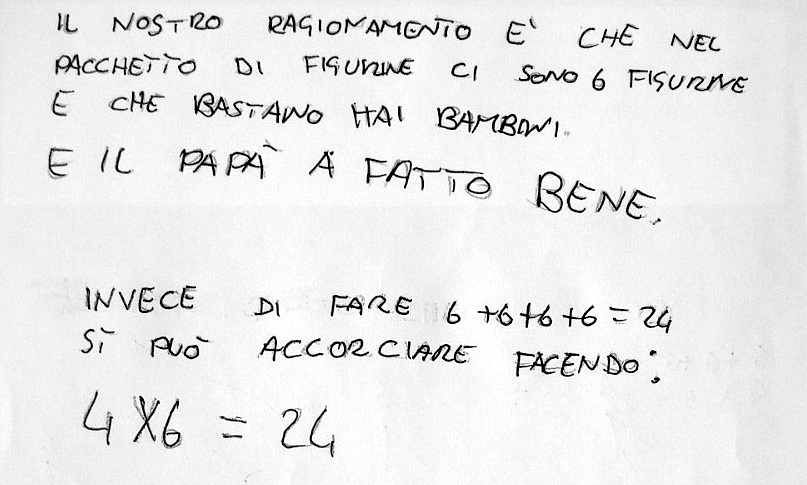 IL NOSTRO RAGIONAMENTO E' CHE NEL
PACCHETTO DI FIGURINE CI SONO 6 FIGURINE
E CHE BASTANO HAI BAMBINI.
E IL PAPÀ A FATTO BENE.
INVECE DI FARE 6+6+6+6=24
SÌ PUÒ ACCORCIARE FACENDO:
4X6=24